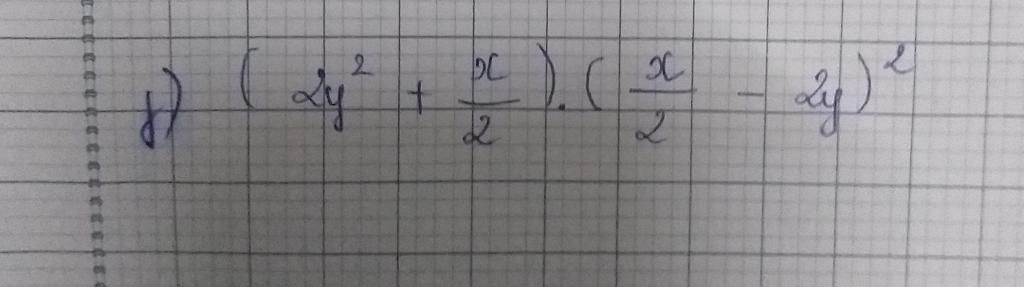 f) (2y² + x/2).(x/2 - 2y)²